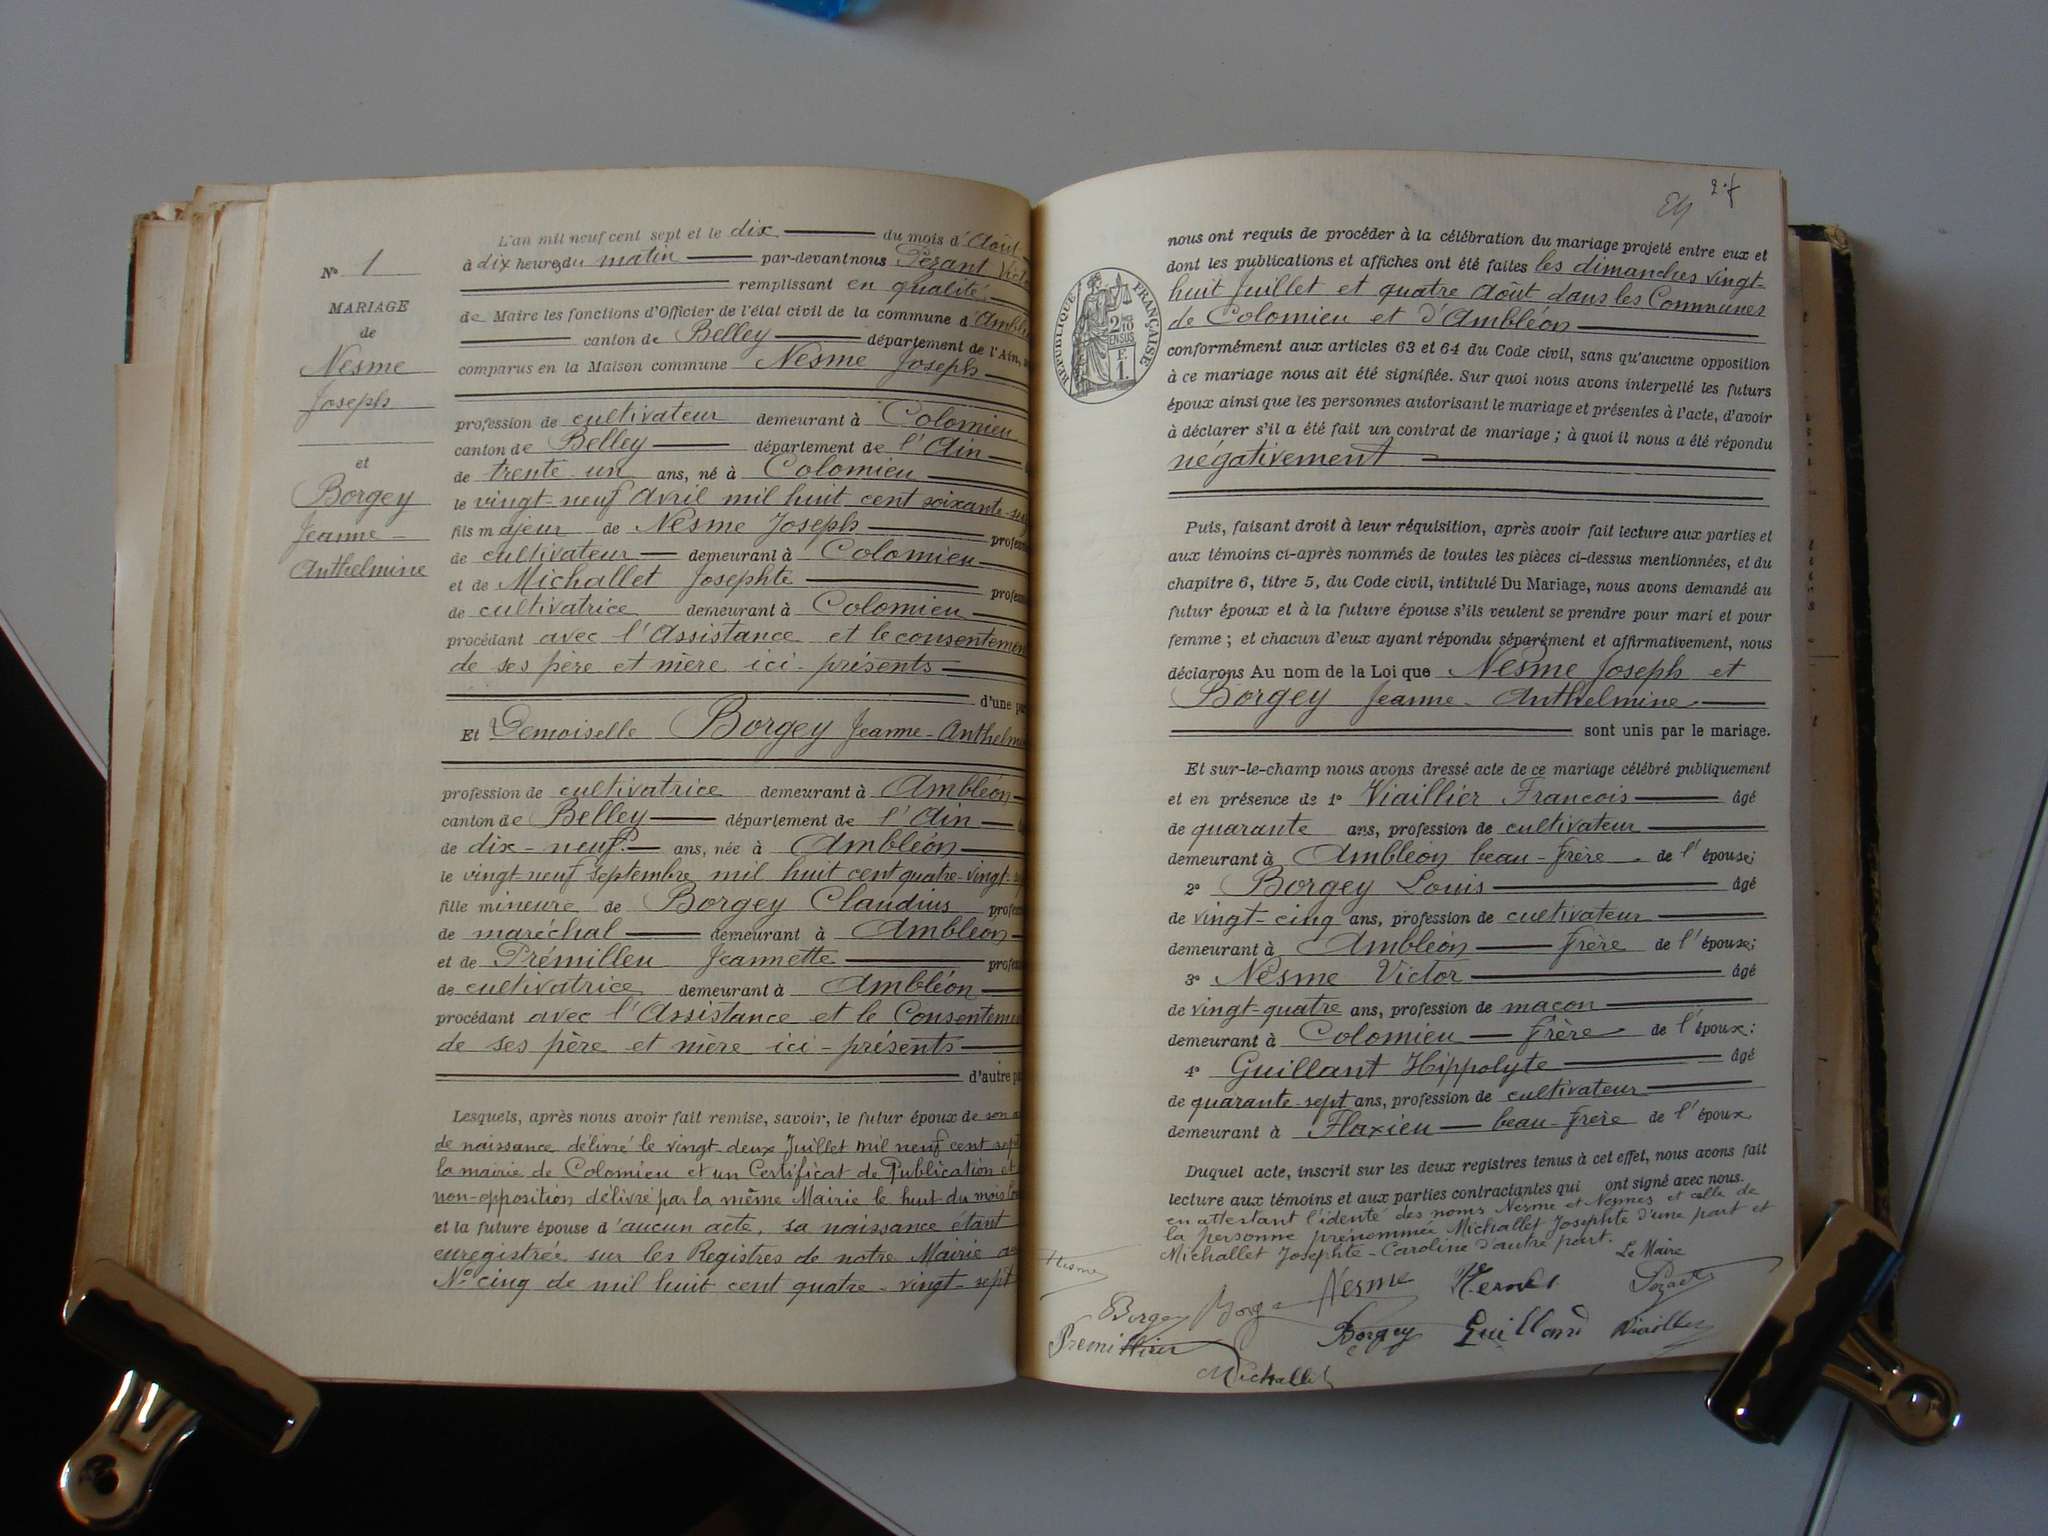 L'an mil neuf cent sept et le dix du mois d'Août
à dix heures du matin par-devant nous Pézant
remplissant en qualité
de Maire les fonctions d'Officier de l'état civil de la commune d'
canton de Belley département de l'Ain,
comparus en la Maison commune Nesme Joseph
profession de cultivateur demeurant à Colomieu
canton de Belley département de l'Ain
de trente un ans, né à Colomieu
le vingt-neuf Avril mil huit cent soixante-
fils majeur de Nesme Joseph
de cultivateur demeurant à Colomieu
et de Michallet Josephte
de cultivatrice demeurant à Colomieu
procédant avec l'Assistance et le consentemen
de ses père et mère ici-présents
d'une
Et Demoiselle Borgey Jeanne-Anthelm
profession de cultivatrice demeurant à Ambléon
canton de Belley département de l'Ain
de dix-neuf ans, née à Ambléon
le vingt neuf septembre mil huit cent quatre-vingt-
fille mineure de Borgey Claudius
de maréchal demeurant à Ambléon
et de Prémilleu Jeannette
de cultivatrice demeurant à Ambléon
procédant avec l'Assistance et le Consenteme
de ses père et mère ici-présents
d'autre
Lesquels, après nous avoir fait remise, savoir, le futur époux de son
de naissance délivré le vingt-deux Juillet mil neuf cent sept
la mairie de Colomieu et un Certificat de Publication et
non-opposition délivré par la même Mairie le huit du mois
et la future épouse d'aucun acte, sa naissance étant
enregistrée sur les Registres de notre Mairie
N° cinq de mil huit cent quatre-vingt-sept
N° 1
MARIAGE
de
Nesme
Joseph
et
Borgey
Jeanne-
Anthelmine
27
nous ont requis de procéder à la célébration du mariage projeté entre eux et
dont les publications et affiches ont été faites les dimanches vingt-
huit Juillet et quatre Août dans les Communes
de Colomieu et d'Ambléon
conformément aux articles 63 et 64 du Code civil, sans qu'aucune opposition
à ce mariage nous ait été signifiée. Sur quoi nous avons interpellé les futurs
époux ainsi que les personnes autorisant le mariage et présentes à l'acte, d'avoir
à déclarer s'il a été fait un contrat de mariage ; à quoi il nous a été répondu
négativement
Puis, faisant droit à leur réquisition, après avoir fait lecture aux parties et
aux témoins ci-après nommés de toutes les pièces ci-dessus mentionnées, et du
chapitre 6, titre 5, du Code civil, intitulé Du Mariage, nous avons demandé au
futur époux et à la future épouse s'ils veulent se prendre pour mari et pour
femme ; et chacun d'eux ayant répondu séparément et affirmativement, nous
déclarons Au nom de la Loi que Nesme Joseph et
Borgey Jeanne-Anthelmine
sont unis par le mariage.
Et sur-le-champ nous avons dressé acte de ce mariage célébré publiquement
et en présence de 1° Viaillier Francois âgé
de quarante ans, profession de cultivateur
demeurant à Ambléon beau-frère de l'épouse;
2° Borgey Louis âgé
de vingt-cinq ans, profession de cultivateur
demeurant à Ambléon frère de l'épouse;
3° Nesme Victor âgé
de vingt-quatre ans, profession de maçon
demeurant à Colomieu frère de l'époux;
4° Guillant Hippolyte âgé
de quarante-sept ans, profession de cultivateur
demeurant à Flaxieu beau-frère de l'époux
Duquel acte, inscrit sur les deux registres tenus à cet effet, nous avons fait
lecture aux témoins et aux parties contractantes qui ont signé avec nous
en attestant l'identé des noms Nesme et Nesmes et celle de
la personne prénommée Michallet Josephte d'une part et
Michallet Josephte-Caroline d'autre part.
Le Maire
Nesme
Borgey
Borgey Guilland Viaillier
Michallet
RÉPUBLIQUE FRANÇAISE